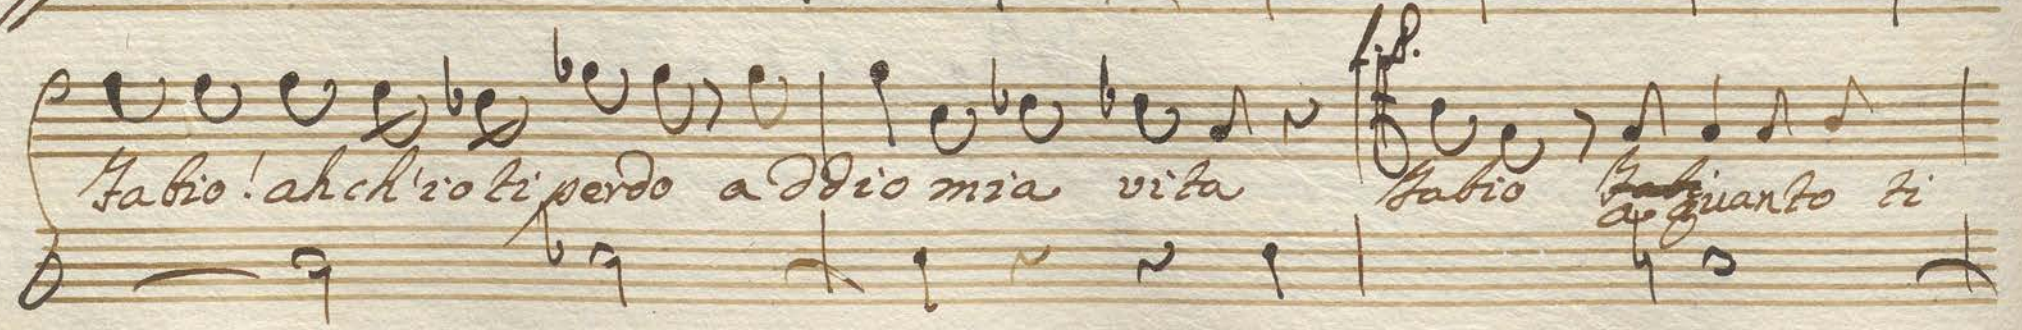 f.p.
Fabio! ah ch'io ti perdo addio mia vita Fabio a quanto ti